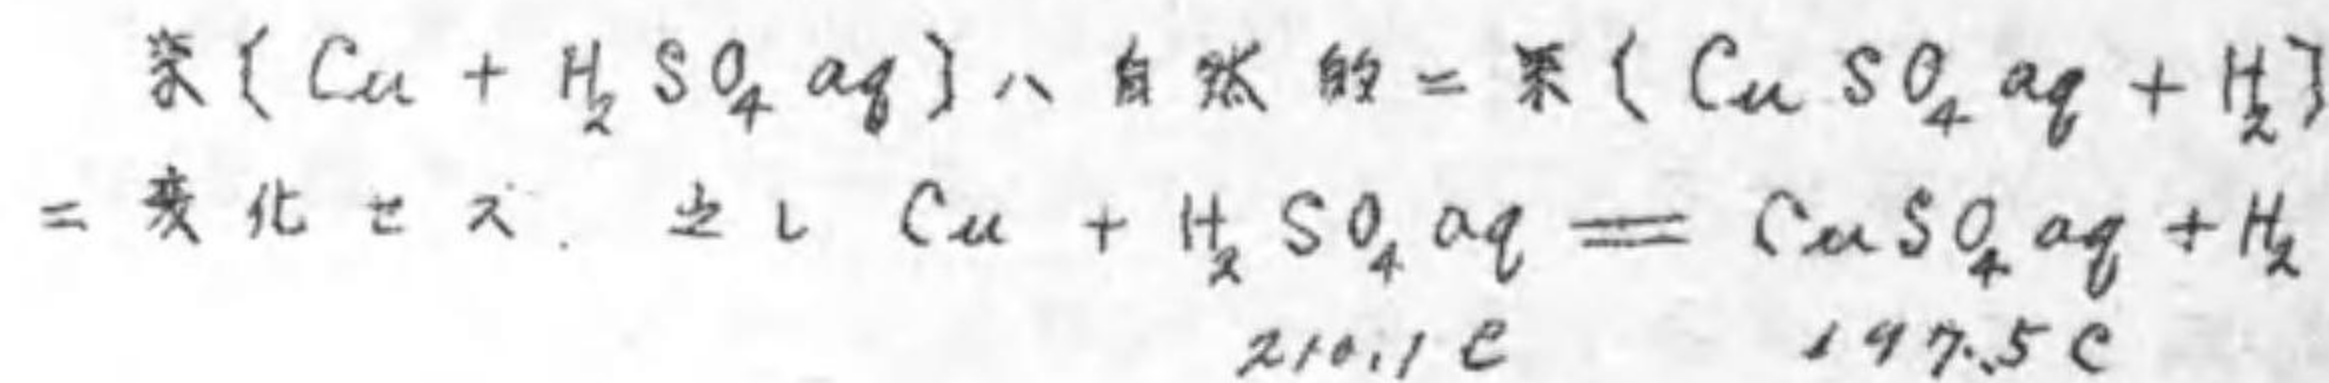 系{Cu + H₂SO₄aq}ハ自然的ニ系{CuSO₄aq + H₂}
ニ変化セズ. 之レ Cu + H₂SO₄aq = CuSO₄aq + H₂
210.1C 197.5C